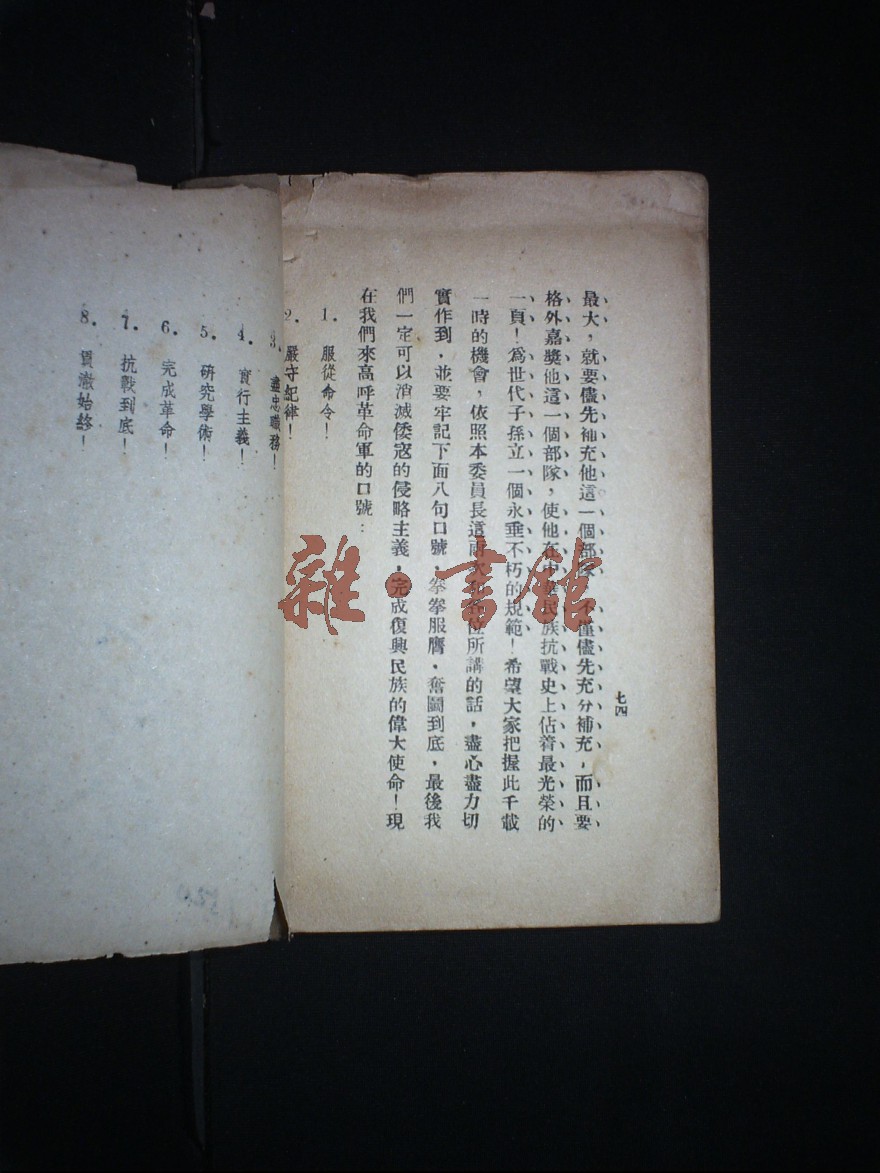 七四
最大，就要儘先補充他這一個部隊，不僅儘先充分補充，而且要
格外嘉獎他這一個部隊，使他在中華民族抗戰史上佔着最光榮的
一頁！爲世代子孫立一個永垂不朽的規範！希望大家把握此千載
一時的機會，依照本委員長這兩次對各位所講的話，盡心盡力切
實作到，並要牢記下面八句口號，拳拳服膺，奮鬭到底，最後我
們一定可以消滅倭寇的侵略主義，完成復興民族的偉大使命！現
在我們來高呼革命軍的口號：
1. 服從命令！
2. 嚴守紀律！
3. 盡忠職務！
4. 實行主義！
5. 研究學術！
6. 完成革命！
7. 抗戰到底！
8. 貫澈始終！
雜·書館